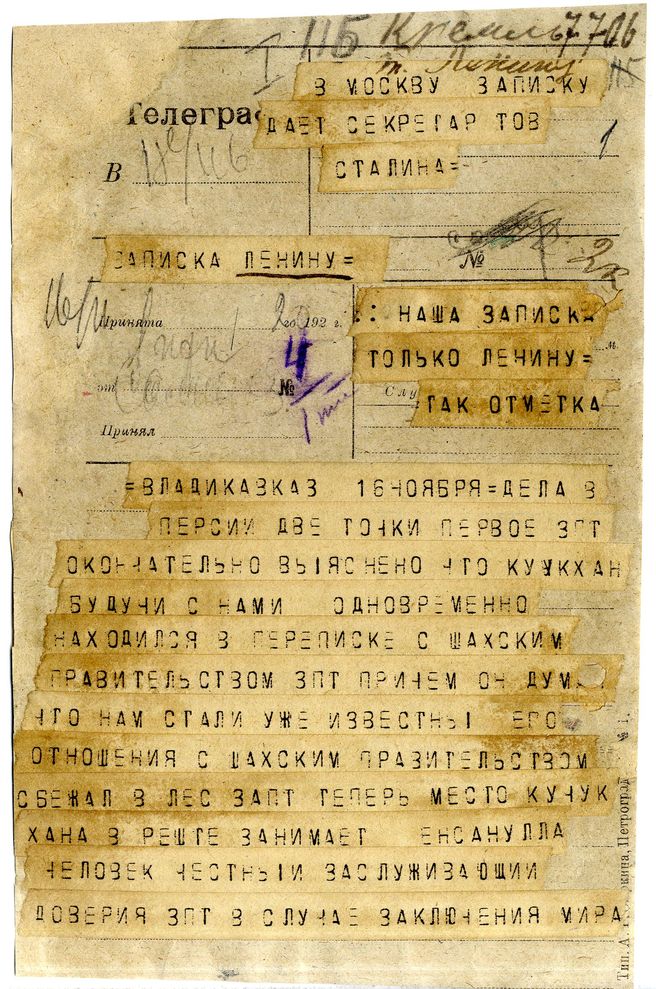 115 Кремль 7706
т. Ленину
115
В МОСКВУ ЗАПИСКУ
Телеграф
ДАЕТ СЕКРЕТАР ТОВ
1
В
СТАЛИНА=
№
ЗАПИСКА ЛЕНИНУ=
Принята 20 го 192 г.
:: НАША ЗАПИСКА
ТОЛЬКО ЛЕНИНУ=
м.
4
от №
Слу
ТАК ОТМЕТКА
Принял
=ВЛАДИКАВКАЗ 16НОЯБРЯ=ДЕЛА В
ПЕРСИИ ДВЕ ТОЧКИ ПЕРВОЕ ЗПТ
ОКОНЧАТЕЛЬНО ВЫЯСНЕНО ЧТО КУЧКХАН
БУДУЧИ С НАМИ ОДНОВРЕМЕННО
НАХОДИЛСЯ В ПЕРЕПИСКЕ С ШАХСКИМ
ПРАВИТЕЛЬСТВОМ ЗПТ ПРИЧЕМ ОН ДУМ
ЧТО НАМ СТАЛИ УЖЕ ИЗВЕСТНЫ ЕГО
ОТНОШЕНИЯ С ШАХСКИМ ПРАВИТЕЛЬСТВОМ
СБЕЖАЛ В ЛЕС ЗАПТ ТЕПЕРЬ МЕСТО КУЧУК
ХАНА В РЕШТЕ ЗАНИМАЕТ ЕНСАНУЛЛА
ЧЕЛОВЕК ЧЕСТНЫЙ ЗАСЛУЖИВАЮЩИЙ
ДОВЕРИЯ ЗПТ В СЛУЧАЕ ЗАКЛЮЧЕНИЯ МИРА
Петроград № 1.